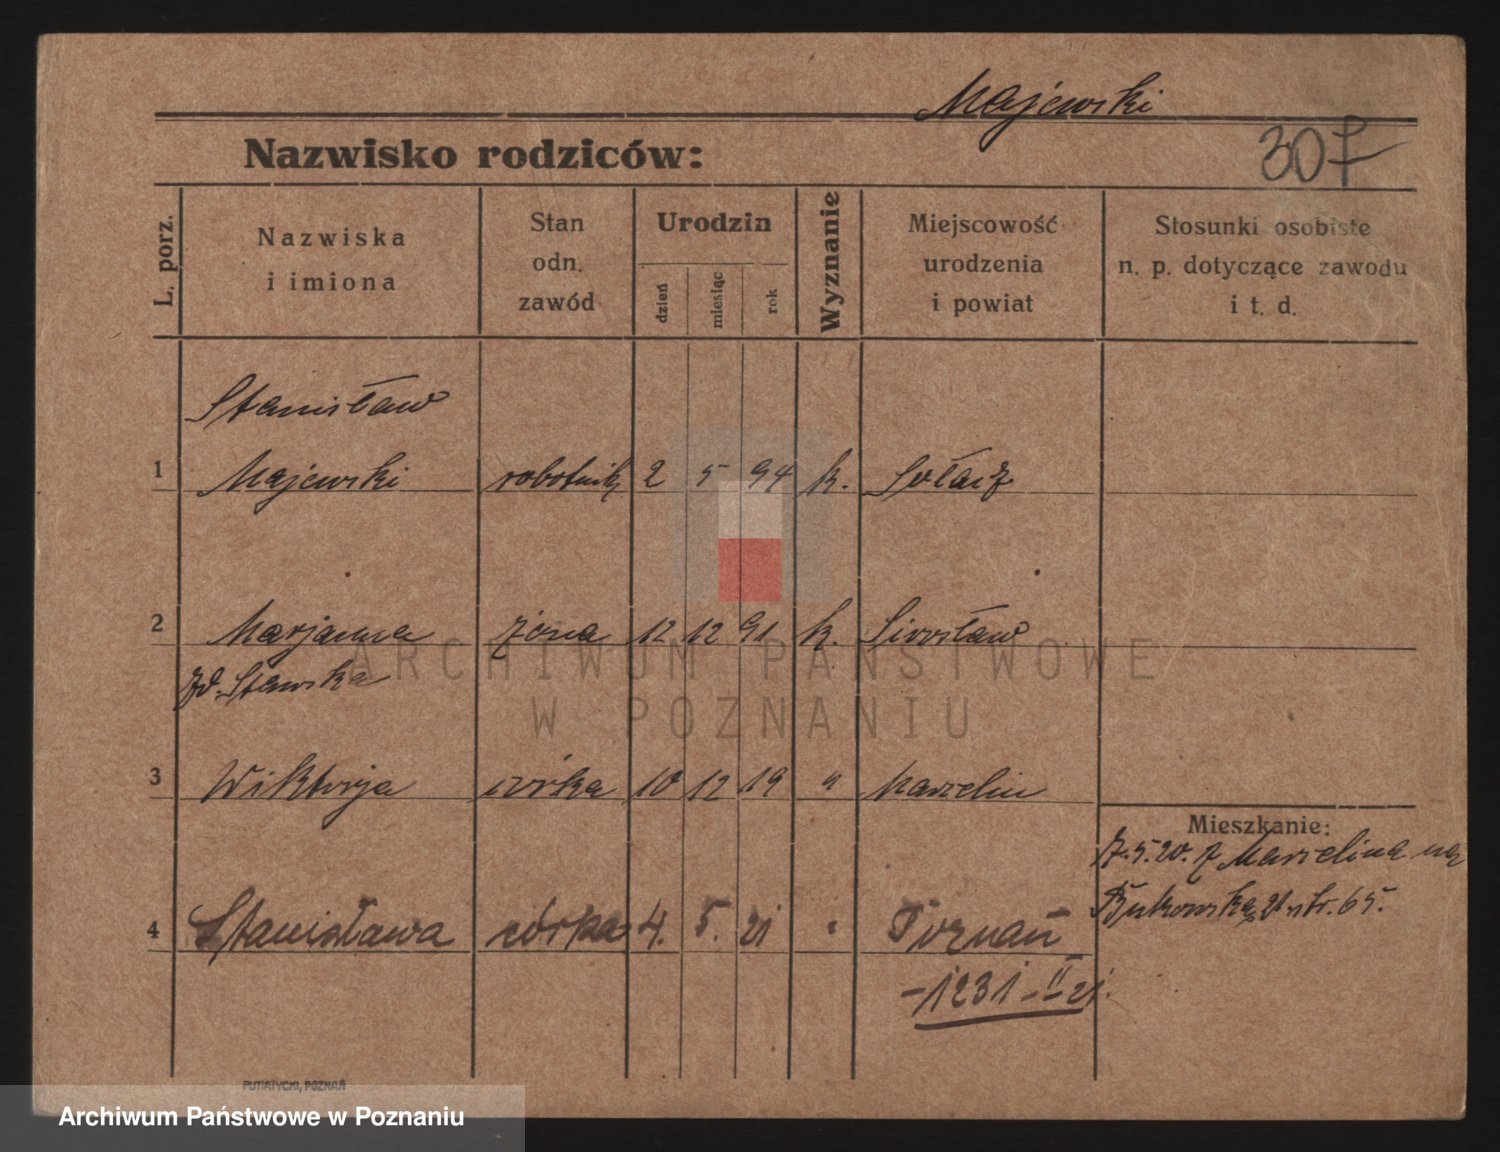 Majewski
307
Nazwisko rodziców:
L. porz.
Nazwiska
i imiona
Stan
odn.
zawód
Urodzin
dzień
miesiąc
rok
Wyznanie
Miejscowość
urodzenia
i powiat
Stosunki osobiste
n. p. dotyczące zawodu
i t. d.
Stanisław
1 Majewski robotnik 2 5 94 k. Sołacz
2 Marjanna żona 12 12 91 k.
zd. Stawska
3 Wiktorja córka 10 12 19 " Marcelin
Mieszkanie:
7.5.20. z Marcelina na
Bukowską 21 str. 65.
4 Stanisława córka 4. 5. 21 " Poznań
-1231-II 21.
ARCHIWUM PAŃSTWOWE
W POZNANIU
PUTIATYCKI, POZNAŃ
Archiwum Państwowe w Poznaniu